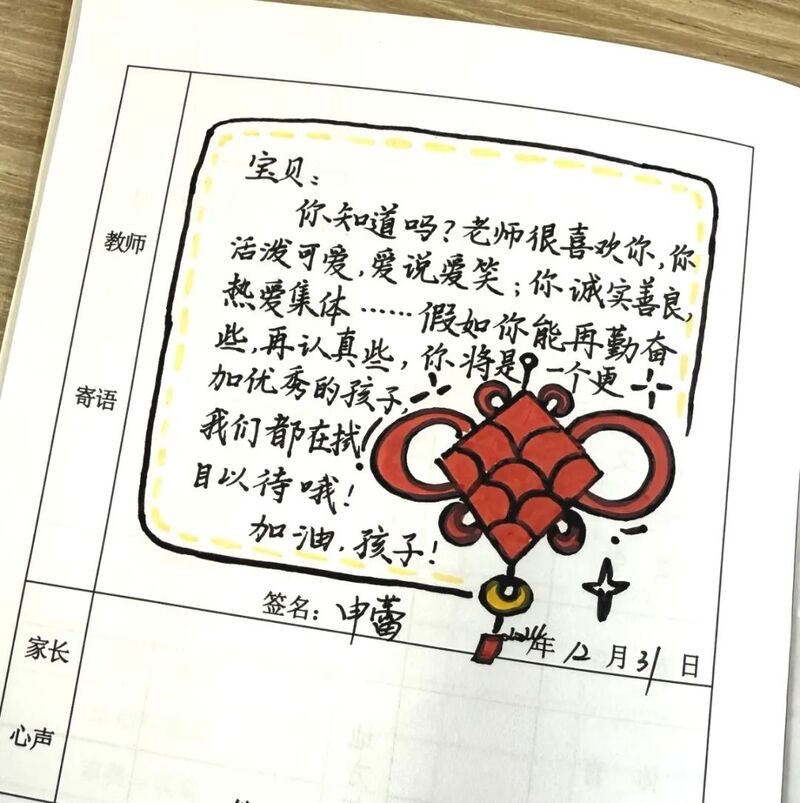 教师
寄语
宝贝：
你知道吗？老师很喜欢你，你
活泼可爱，爱说爱笑；你诚实善良，
热爱集体……假如你能再勤奋
些，再认真些，你将是一个更
加优秀的孩子，
我们都在拭
目以待哦！
加油，孩子！
签名：申蕾
2024年12月31日
家长
心声